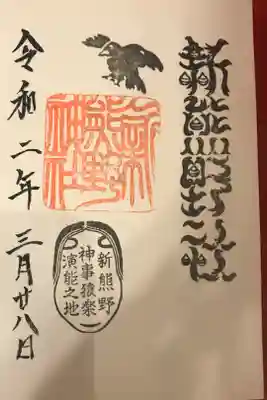 新熊野神社
新熊野
神事猿楽
演能之地
令和二年三月廿八日